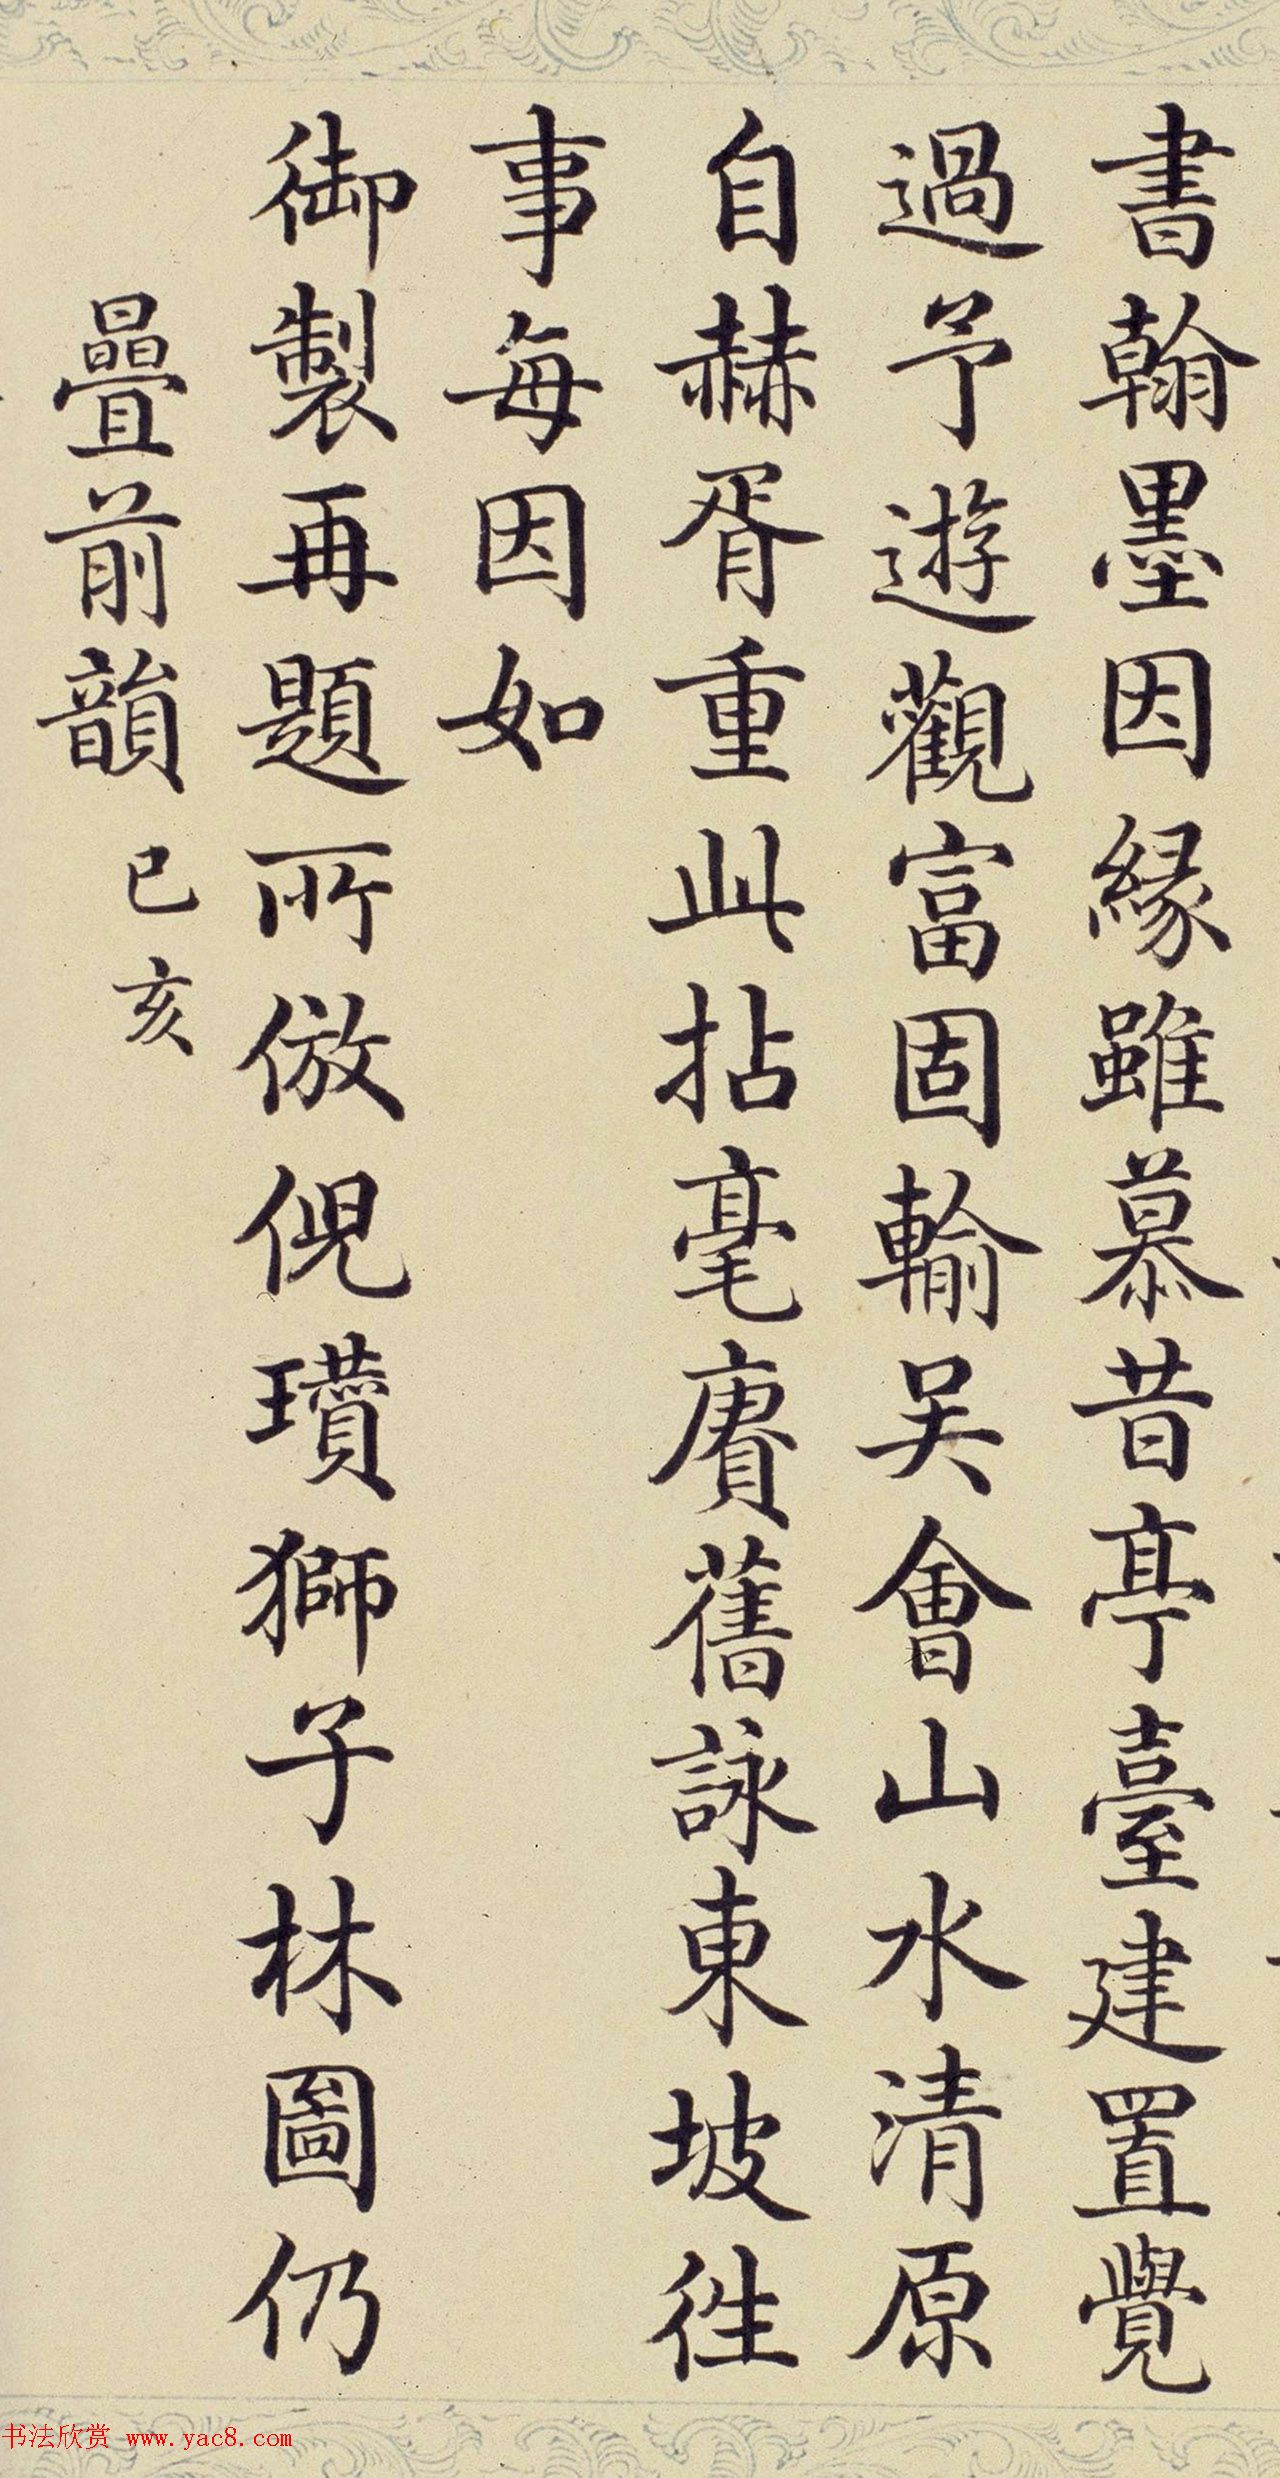 書翰墨因緣雖慕昔亭臺建置覺
過予遊觀富固輸吴會山水清原
自赫胥重此拈毫賡舊詠東坡往
事每因如
御製再題所倣倪瓚獅子林圖仍
疊前韻 己亥
书法欣赏 www.yac8.com